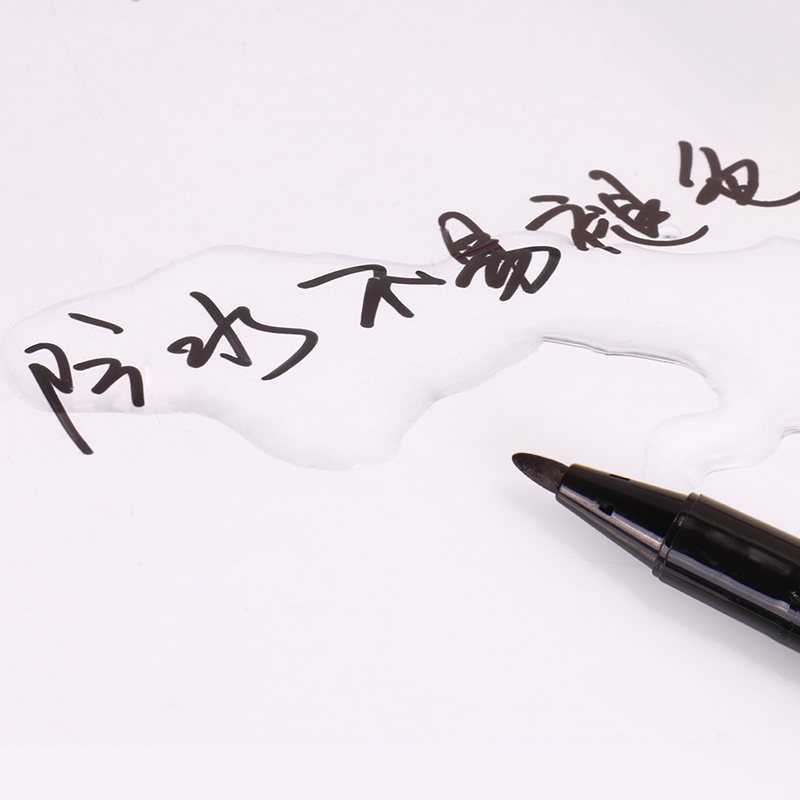 防水不易褪色